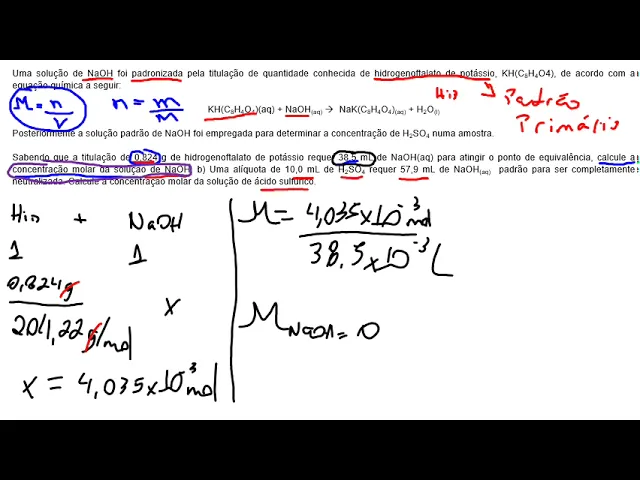 Uma solução de NaOH foi padronizada pela titulação de quantidade conhecida de hidrogenoftalato de potássio, KH(C₈H₄O4), de acordo com a
equação química a seguir:
Hid
Padrão
Primário
M = n/V
n = m/M
KH(C₈H₄O₄)(aq) + NaOH(aq) → NaK(C₈H₄O₄)(aq) + H₂O(l)
Posteriormente a solução padrão de NaOH foi empregada para determinar a concentração de H₂SO₄ numa amostra.
Sabendo que a titulação de 0,824 g de hidrogenoftalato de potássio requer 38,5 mL de NaOH(aq) para atingir o ponto de equivalência, calcule a
concentração molar da solução de NaOH. b) Uma alíquota de 10,0 mL de H₂SO₄ requer 57,9 mL de NaOH(aq) padrão para ser completamente
neutralizada. Calcule a concentração molar da solução de ácido sulfúrico.
Hid + NaOH
1 1
0,824g x
204,22g/mol
x = 4,035x10⁻³ mol
M = 4,035x10⁻³ mol
38,5x10⁻³ L
M NaOH = 0